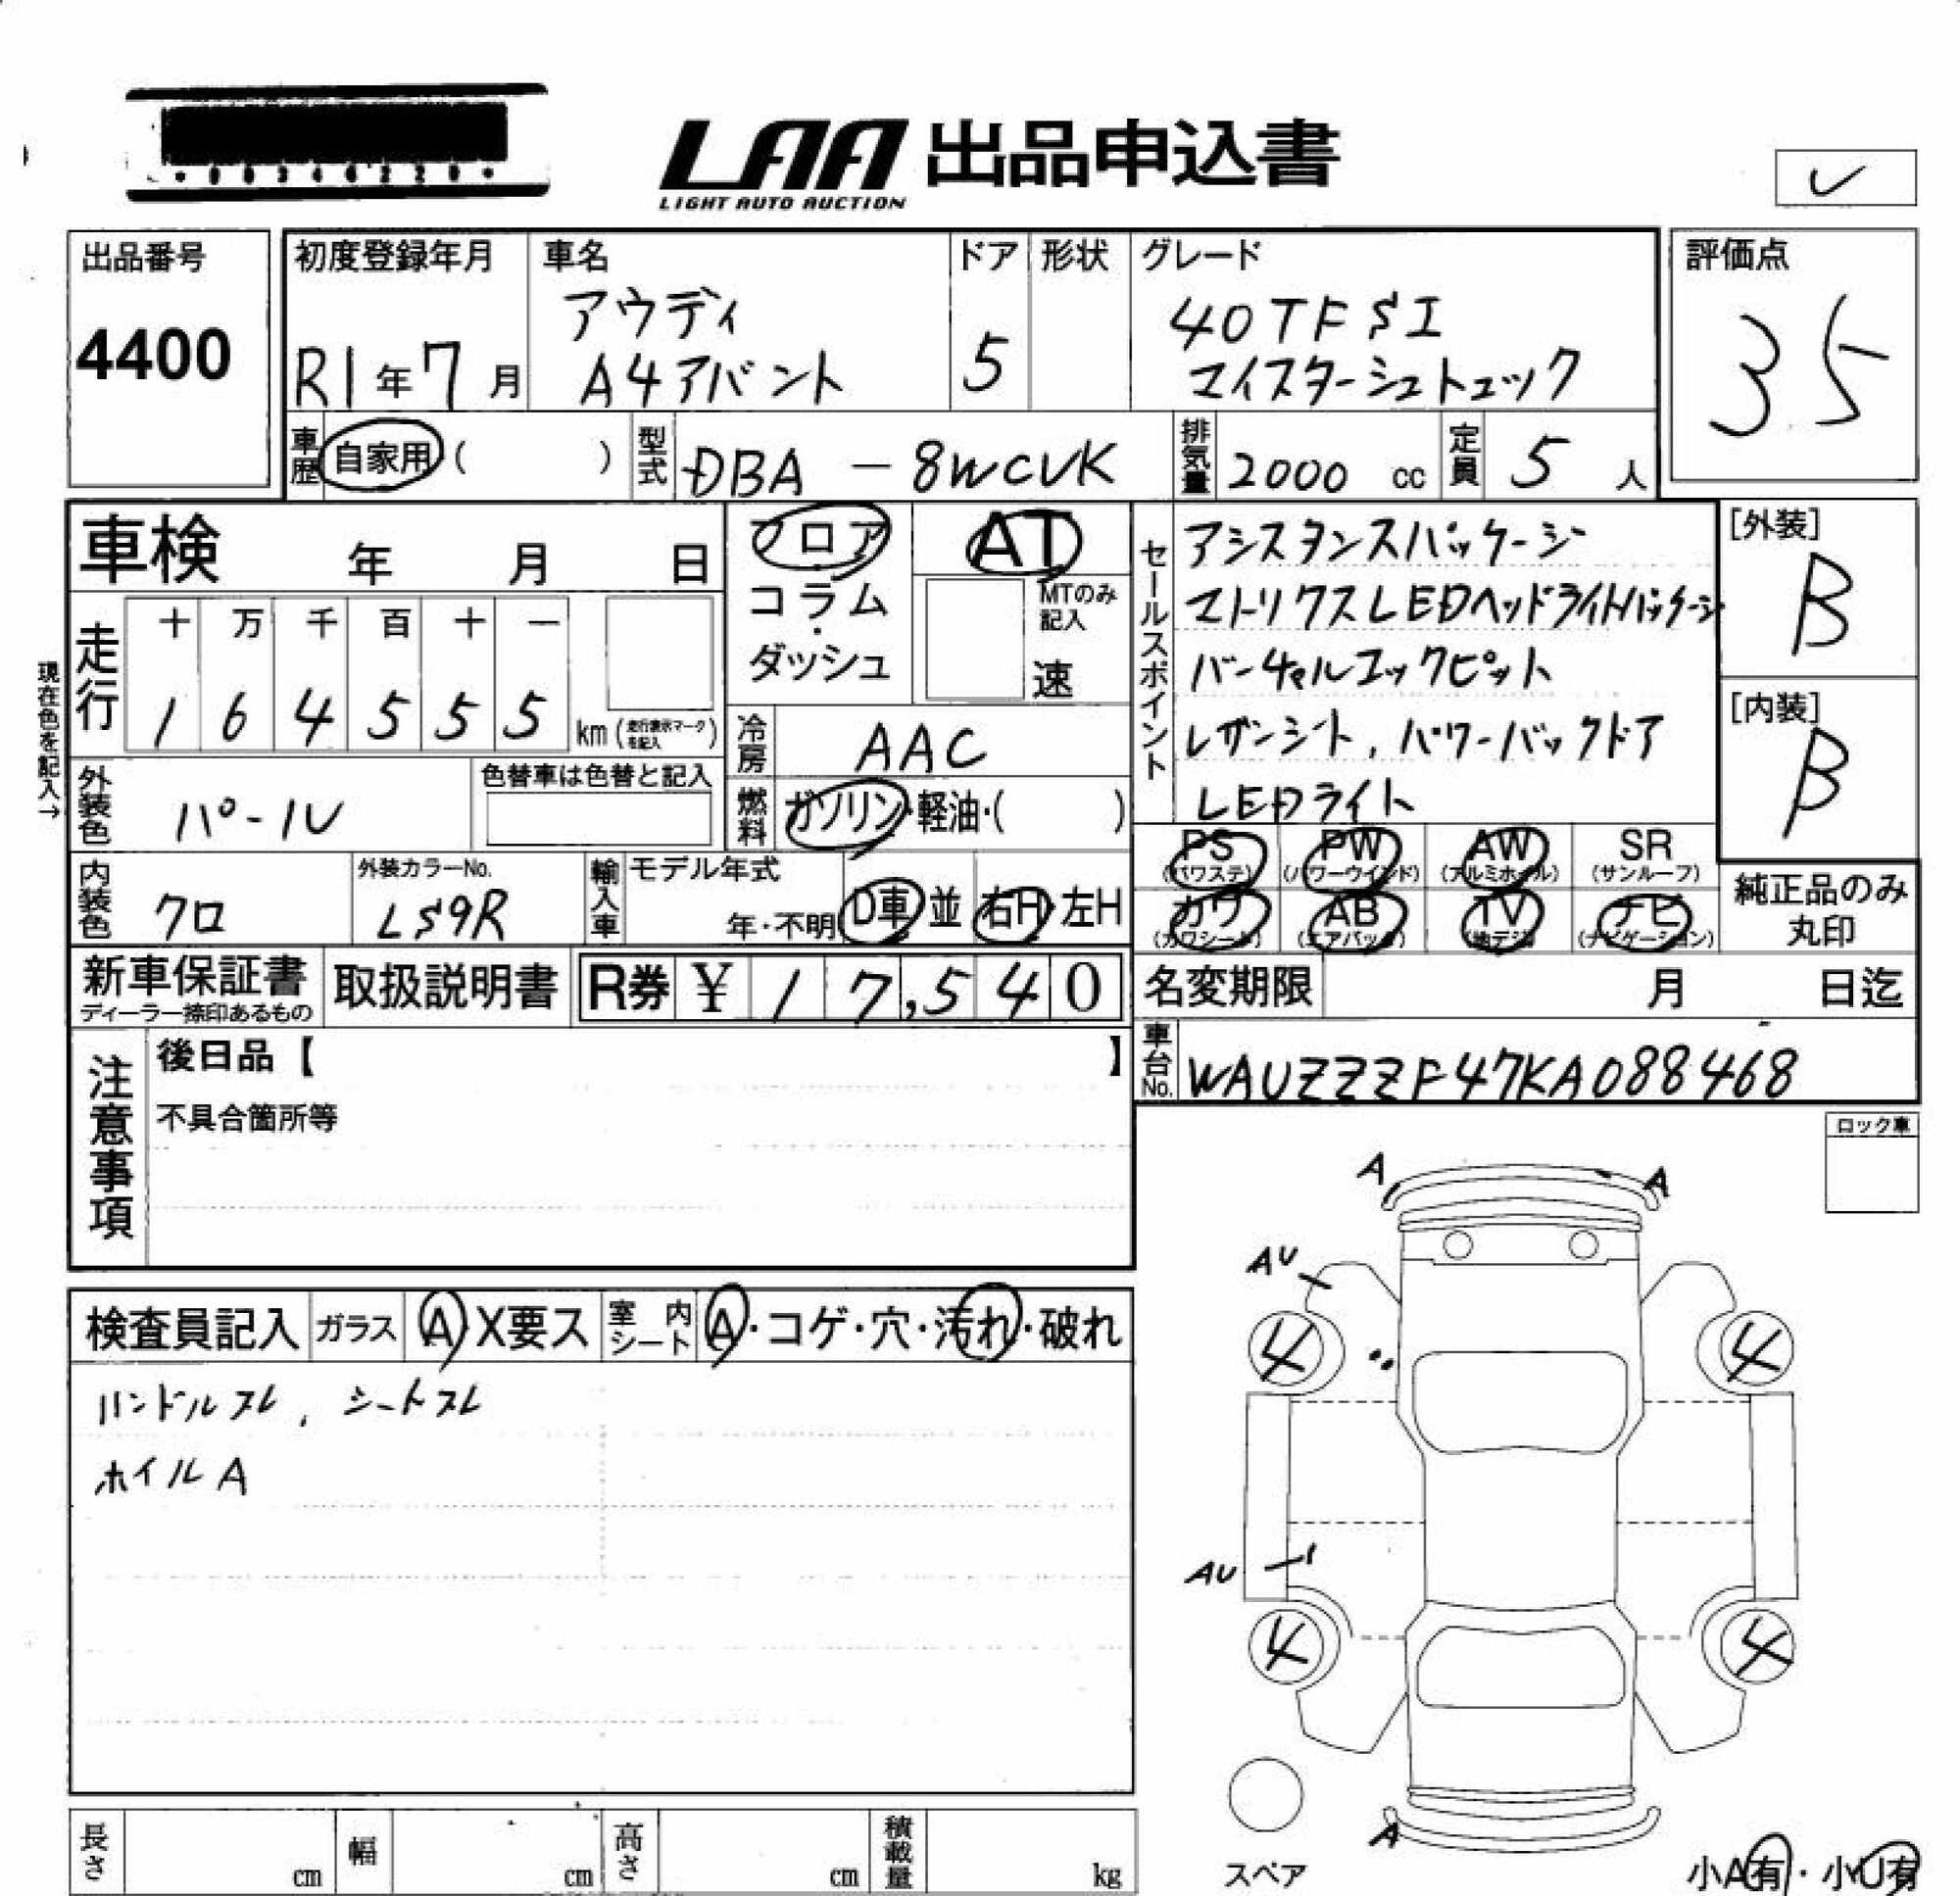 ・00346220・
LAA 出品申込書
LIGHT AUTO AUCTION
レ
出品番号
4400
初度登録年月
R1年7月
車名
アウディ
A4アバント
ドア
5
形状
グレード
40TFSI
マイスターシュトュック
評価点
3.5
車歴
自家用( )
型式
DBA－8WCVK
排気量
2000 cc
定員
5 人
車検 年 月 日
フロア
・
コラム
・
ダッシュ
AT
MTのみ記入
速
セールスポイント
アシスタンスパッケージ
マトリクスLEDヘッドライトパッケージ
バーチャルコックピット
レザーシート, パワーバックドア
LEDライト
[外装]
B
[内装]
B
現在色を記入→
走行
十 万 千 百 十 一
1 6 4 5 5 5 km(走行表示マークを記入)
冷房
AAC
外装色
パール
色替車は色替と記入
燃料
ガソリン・軽油・( )
PS (パワステ)
PW (パワーウインド)
AW (アルミホイル)
SR (サンルーフ)
カワ (カワシート)
AB (エアバック)
TV (地デジ)
ナビ (ナビゲーション)
純正品のみ
丸印
内装色
クロ
外装カラーNo.
LS9R
輸入車
モデル年式
年・不明
D車・並
右H・左H
新車保証書
ディーラー捺印あるもの
取扱説明書
R券 ¥ 17,540
名変期限 月 日迄
車台No.
WAUZZZF47KA088468
注意事項
後日品【 】
不具合箇所等
ロック車
検査員記入
ガラス
A・X要ス
室内シート
A・コゲ・穴・汚れ・破れ
ハンドルスレ, シートスレ
ホイルA
A
A
AU
4
4
AU
4
4
A
スペア
小A有・小U有
長さ cm
幅 cm
高さ cm
積載量 kg